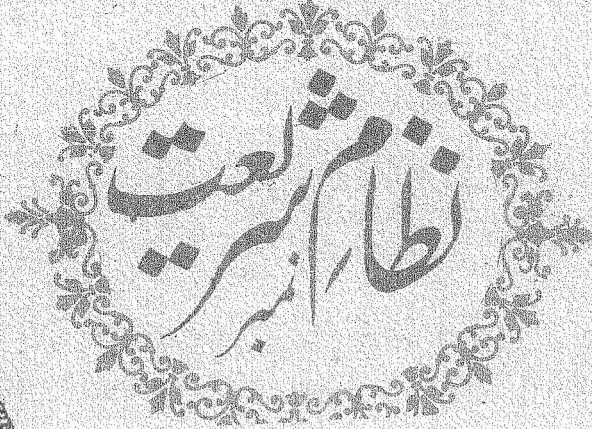 نظامِ شریعت
نمبر